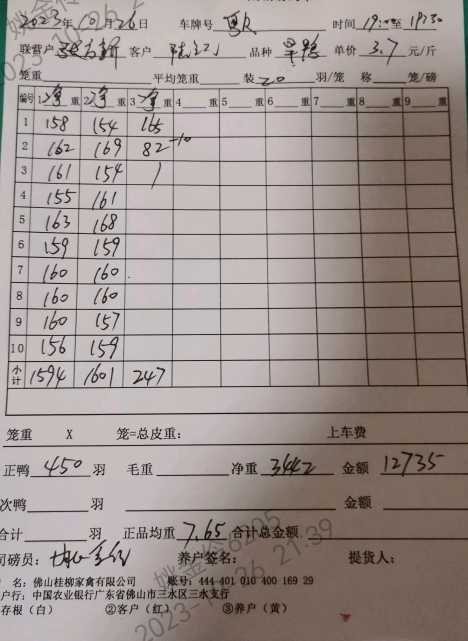 2023年10月26日 车牌号 时间 19:00至19:30
联营户 客户 品种 单价 3.7 元/斤
笼重 平均笼重 装 20 羽/笼 称 笼/磅
编号 1 净重 2 净重 3 净重 4 重 5 重 6 重 7 重 8 重 9 重
1 158 154 165
2 162 169 82 -10
3 161 154
4 155 161
5 163 168
6 159 159
7 160 160
8 160 160
9 160 157
10 156 159
小计 1594 1601 247
笼重 X 笼=总皮重: 上车费
正鸭 450 羽 毛重 净重 3442 金额 12735
次鸭 羽 金额
合计 羽 正品均重 7.65 合计总金额
司磅员: 养户签名: 提货人:
名: 佛山桂柳家禽有限公司 账号: 444 401 010 400 169 29
户行: 中国农业银行广东省佛山市三水区三水支行
存根(白) ②客户(红) ③养户(黄)
2023-10-26 21:39